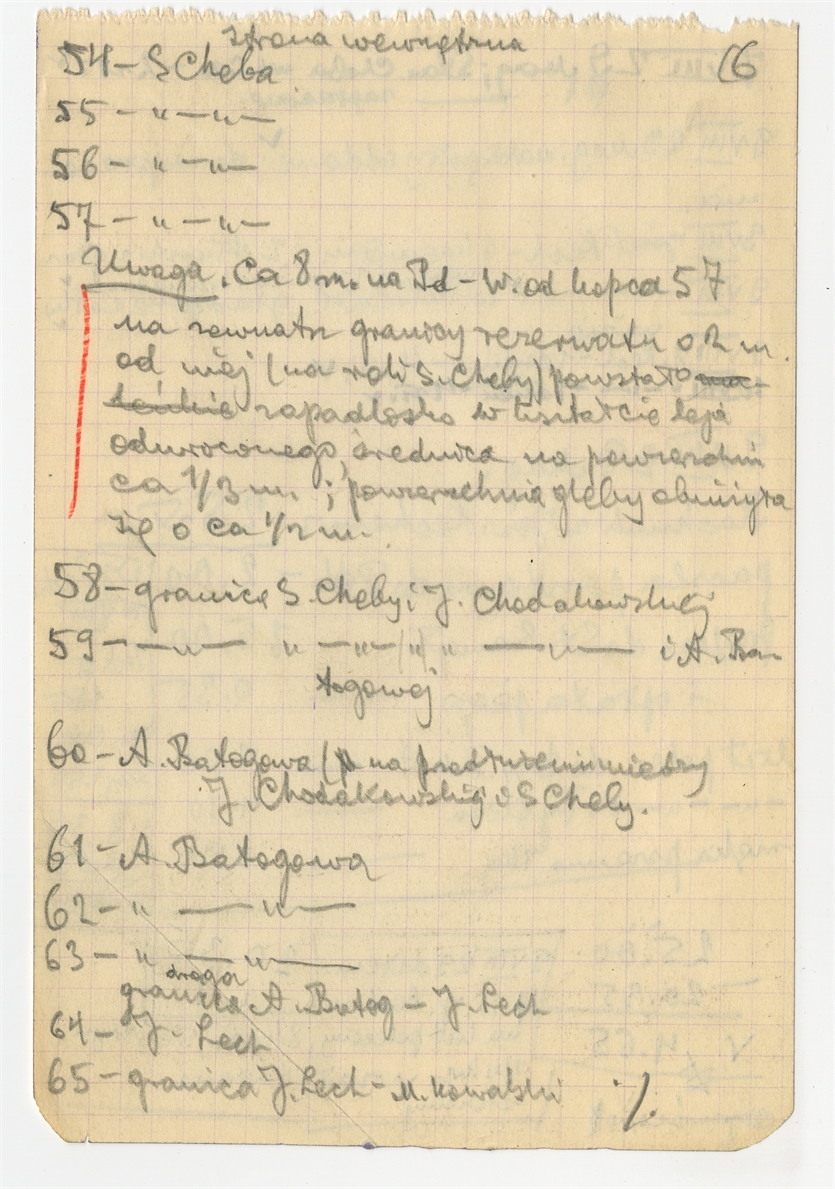 strona wewnętrzna
54 – S Cheba 16
55 – " — " —
56 – " — " —
57 – " — " —
Uwaga. Ca 8 m. na Pd – W. od kopca 57
na zewnątrz granicy rezerwatu o 2 m.
od niej (na roli S. Cheby) powstało
zapadlisko w kształcie leja
odwróconego, średnica na powierzchni
ca 1/3 m. ; powierzchnia gleby obniżyła
się o ca 1/2 m.
58 – granica S. Cheby i J. Chodakowskiej
59 – — " — " — " — " — " — i A. Ba-
togowej
60 – A. Batogowa (na przedłużeniu miedzy
J. Chodakowskiej i S Cheby.
61 – A Batogowa
62 – " — " —
63 – " — " —
droga
granica A. Batog – J. Lech
64 – J. Lech
65 – granica J. Lech – M. Kowalski ./.